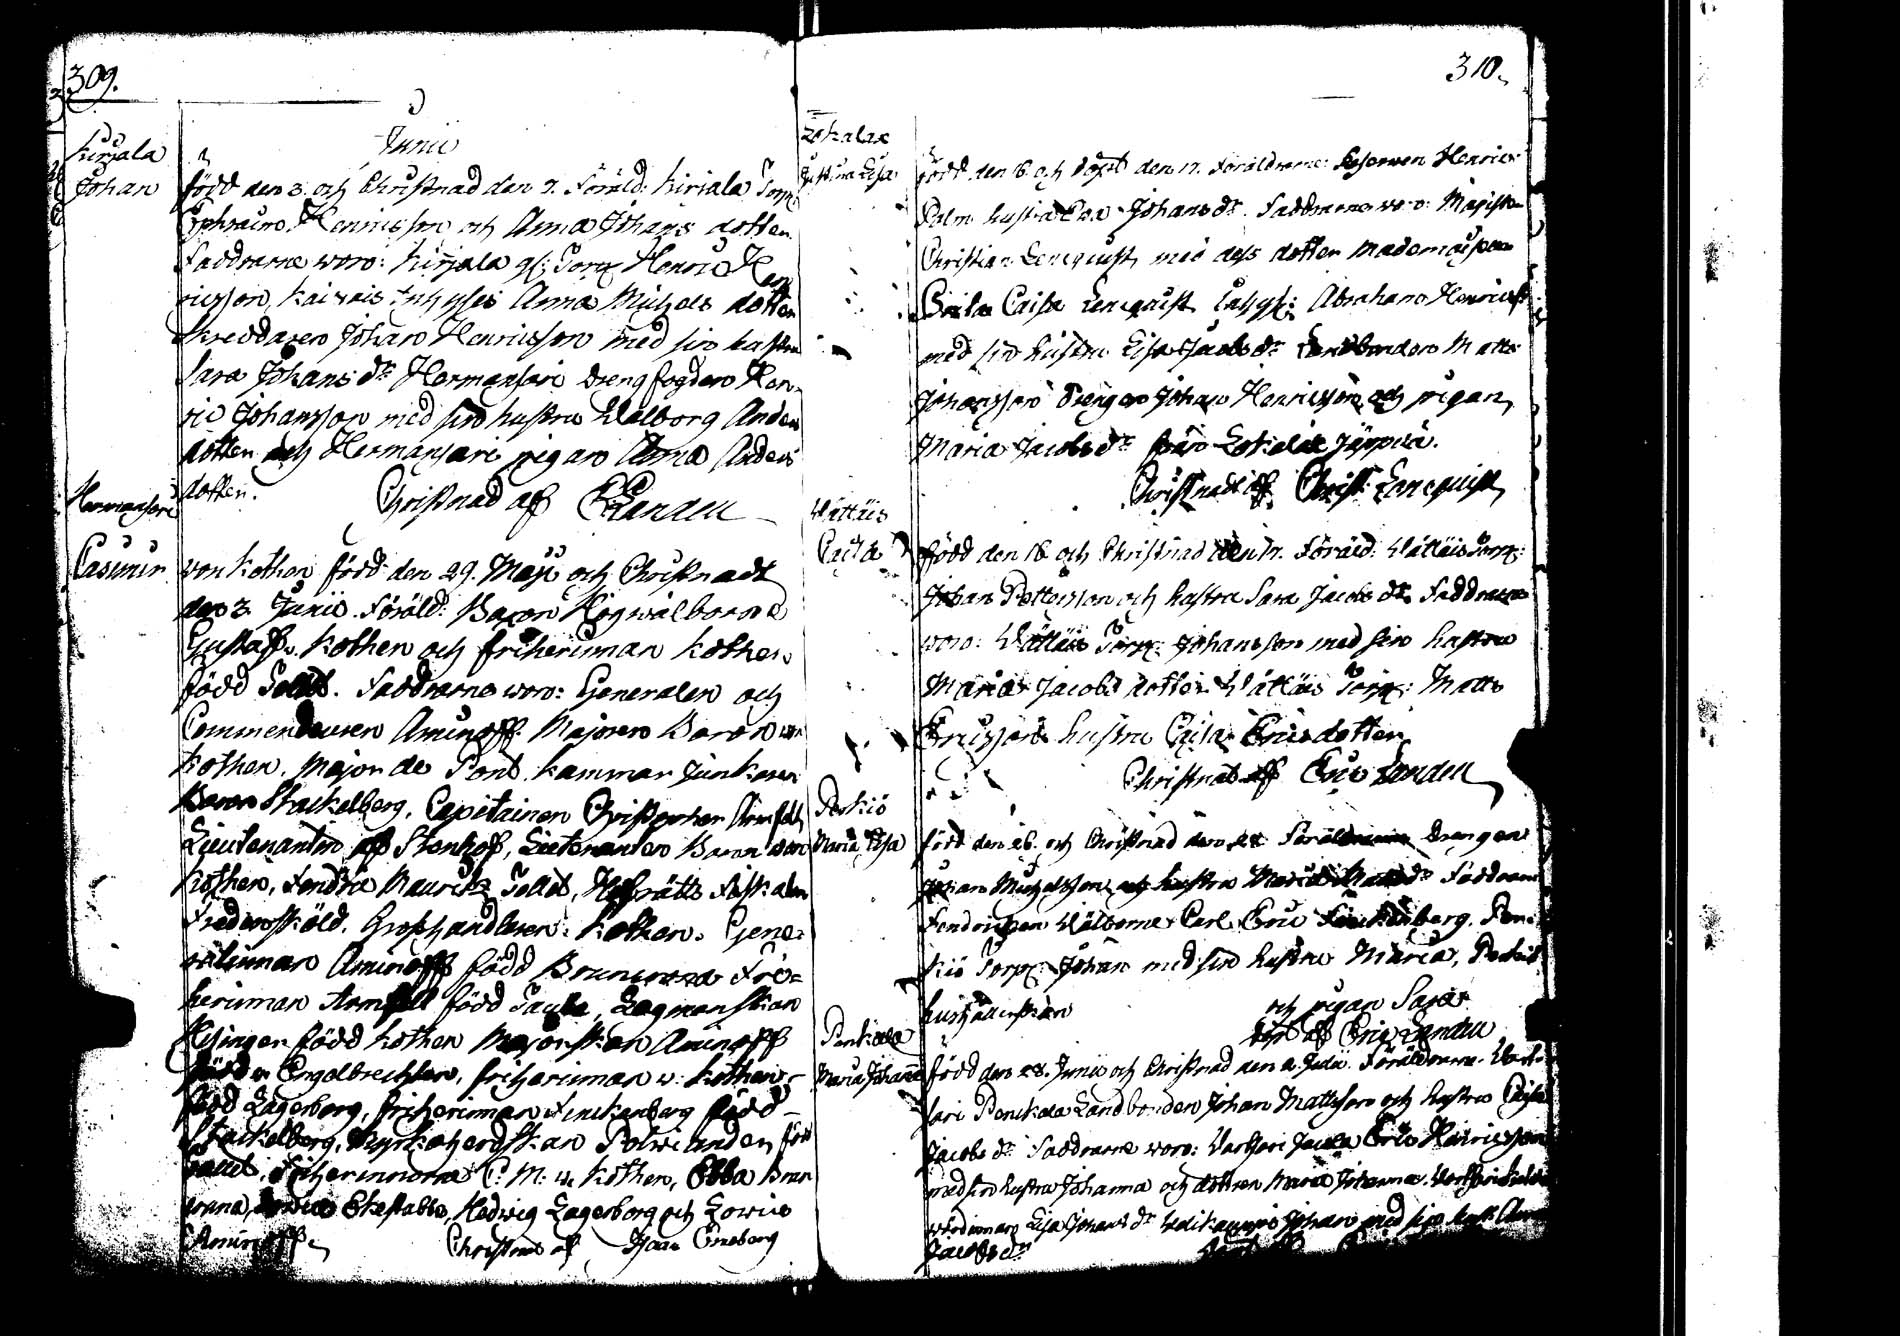 309.
Junii
Kirjala
Johan
född den 3. och Christnad den 7. Föräld: Kirjala Torp:
Ephraim Henricsson och Anna Johans dotter.
Faddrarne woro: Kirjala Torp: Henric Hen
ricsson, Kaiwais Anna Michels dotter
Skreddaren Johan Henricsson med sin hustru
Sara Johans dr Hermansari Drengfogden Hen-
ric Johansson med sin hustru Walborg Anders
dotter och Hermansari pigan Anna Anders
dotter. Christnad af Landell
Hermansari
Casimir
von Kothen född den 29. Maji och Christnadt
den 3. Junii. Föräld: Baron Högwälborne
Gustaff v. Kothen och friherinnan Kothen
född Tollet. Faddrarne woro: Generalen och
Commendeuren Aminoff. Majoren Baron von
Kothen. Major de Pont. Kammar Junkaren
Baron Stackelberg, Capitainen Christopher Armfelt,
Lieutenanten af Stenhof, Lieutenanten Baron von
Kothen, Fendrik Mauritz Tollet, Hofrätts Fiskalen
Fredensköld. Grosshandlaren Kothen. Gene-
ralinnan Aminoff född Brunow Fri-
herinnan Armfelt född Taube, Lagmanskan
Hisinger född Kothen Majorskan Aminoff
född Engelbrechten, friherinnan v: Kothen
född Lagerborg, friherinnan Finckenberg född
Stackelberg, Kyrkoherdskan Polwiander, född
Tollet, Friherinnorna C: M: v. Kothen, Ebba
Ekestubbe, Hedwig Lagerborg och Lowise
Aminoff. Christnad af Isaac Erneberg
310.
Lokalax
Justina Lisa
född den 16. och döpt den 17. Föräldrarne: Henric
Palm hustru Eva Johans dr. Faddrarne woro: Magister
Christian Lencquist, med dess dotter Mademoiselle
Brita Caisa Lencquist Abraham Henricss:
med sin hustru Lisa Jacobs dr Landbonden Matts
Johansson Drengen Johan Henricsson och pigan
Maria Jacobs dr från Lokalax Jäppilä.
Christnadt af Christ: Lencquist
Wättäis
Caisa
född den 16. och Christnad den 17. Föräld: Wättäis Torp:
Johan Pettersson och hustru Sara Jacobs dr. Faddrarne
woro: Wättäis Torp: Johansson med sin hustru
Maria Jacobs dotter Wättäis Torp: Matts
Ericssons hustru Caisa Ericsdotter
Christnat af Eric Landell
Perkiö
Maria Lisa
född den 26. och Christnad den 28 Föräldrarne Drengen
Johan Michelsson och hustru Maria Matts dr Faddrarne
Fendricken Wälborne Carl Eric Finckenberg. Per-
kiö Torp: Johan med sin hustru Maria, Perkiö
hushållerskan och pigan Sara
döpt af Eric Landell
Penkala
Maria Johanna
född den 28. Junii och Christnad den 2. Julii. Föräldrarne.
Penckala Landbonden Johan Mattsson och hustru Caisa
Jacobs dr Faddrarne woro: Eric Henricsson
med sin hustru Johanna och dottren Maria Johanna.
Lisa Johans dr Johan med sin hust: Anna
Jacobs dr